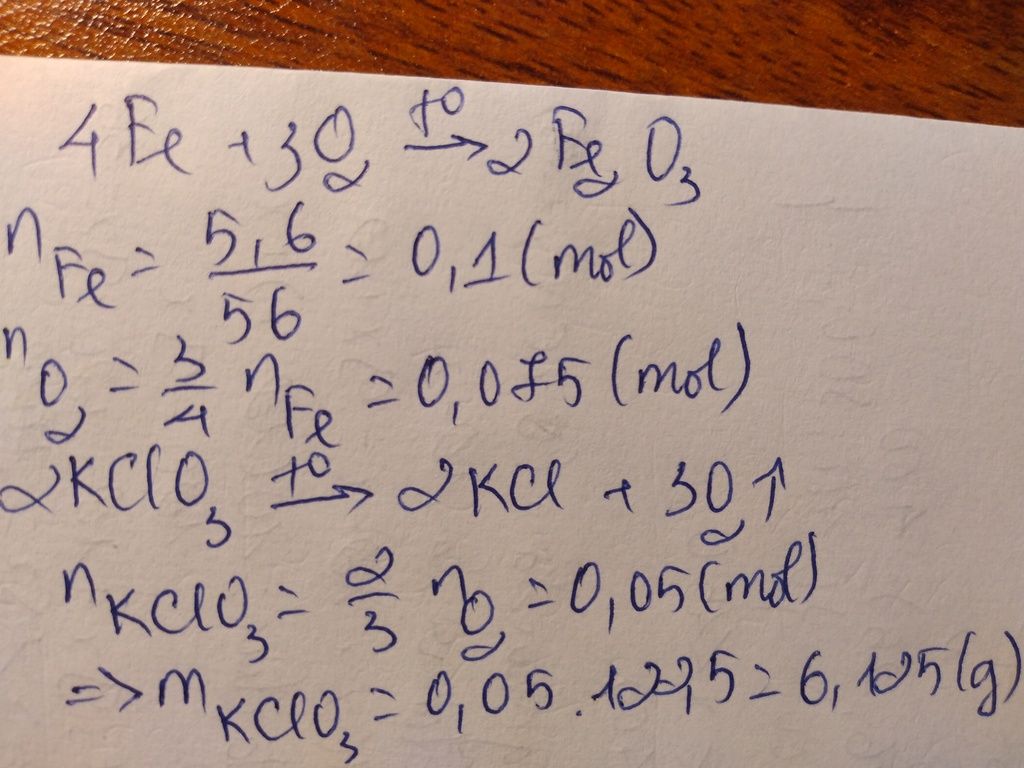 4Fe + 3O₂ →(t°) 2Fe₂O₃
n_Fe = 5,6/56 = 0,1 (mol)
n_O₂ = 3/4 n_Fe = 0,075 (mol)
2KClO₃ →(t°) 2KCl + 3O₂↑
n_KClO₃ = 2/3 n_O₂ = 0,05 (mol)
=> m_KClO₃ = 0,05 . 122,5 = 6,125 (g)